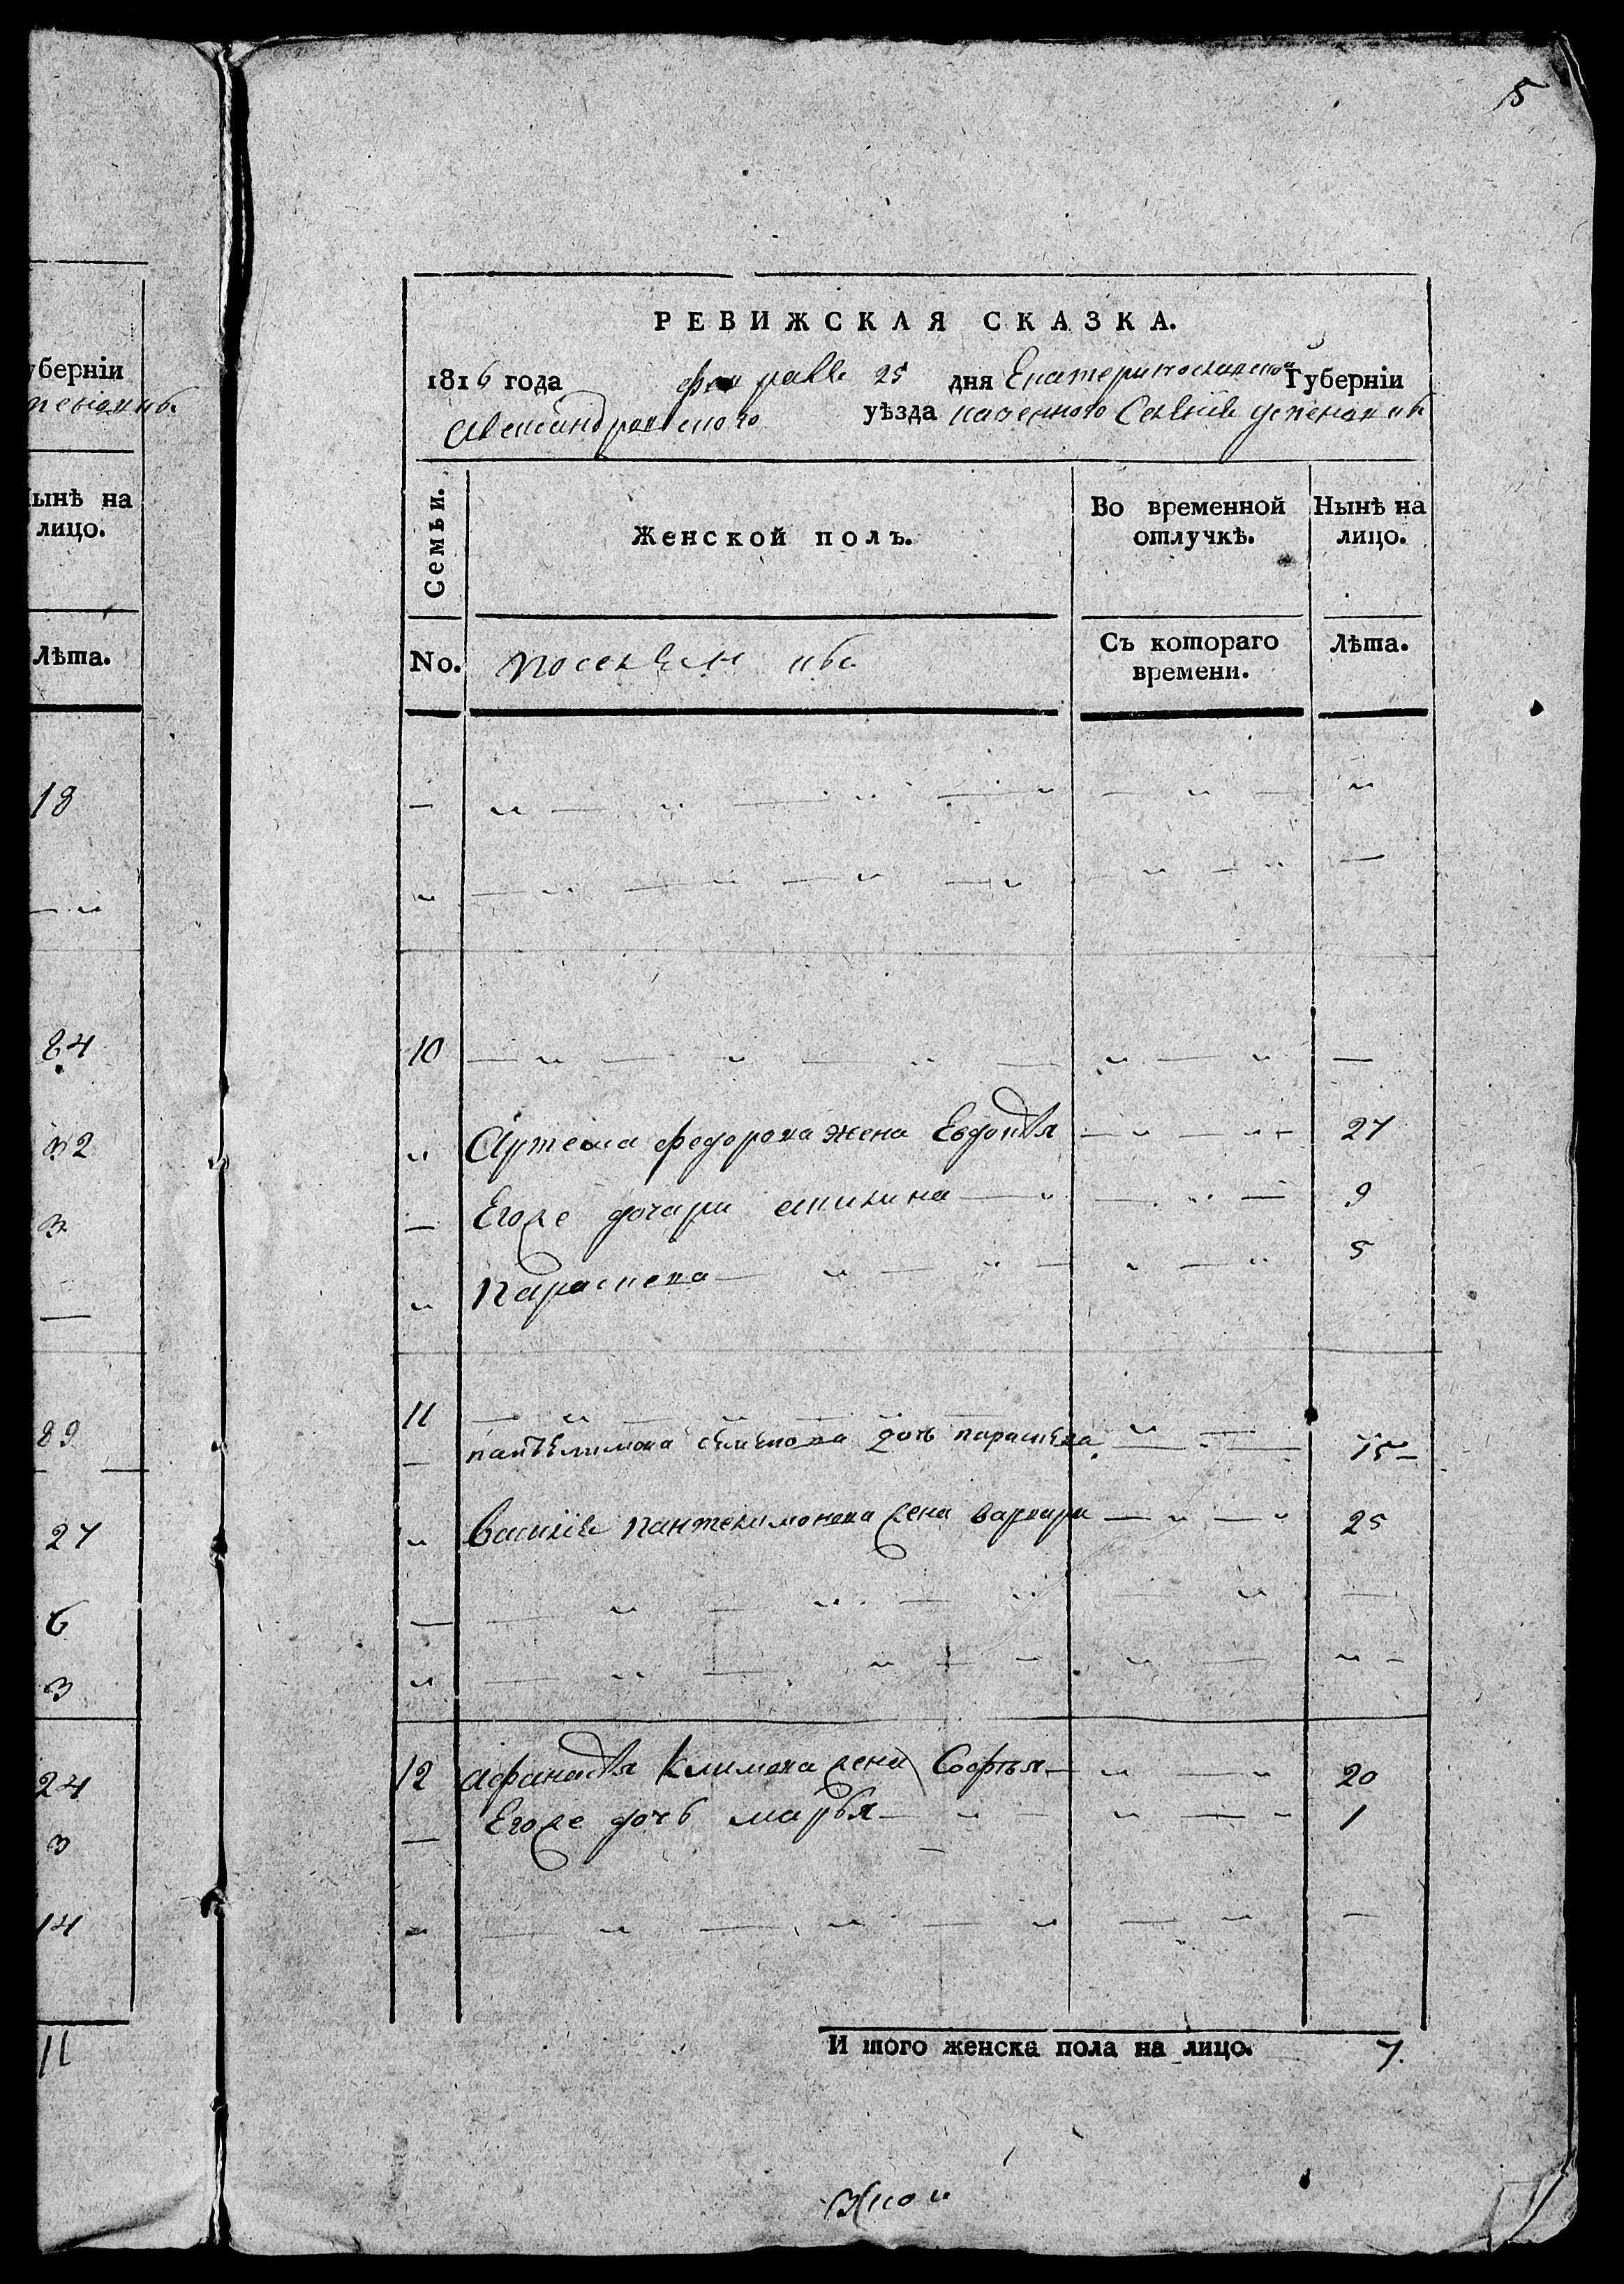 5
РЕВИЖСКАЯ СКАЗКА.
1816 года февраля 25 дня Екатеринославской Губерніи
Александрійского уѣзда казенного Селенія
Семьи.
Женской полъ.
Во временной отлучкѣ.
Нынѣ на лицо.
No.
поселян
Съ котораго времени.
Лѣта.
10
Артема федорова жена Евдокія 27
Его же дочери 9
Параскева 5
11
пантелимона семенова дочь параскева 15
василія пантелимонова жена варвара 25
12 афанасія климова жена Софья 20
Его же дочь марья 1
И того женска пола на лицо. 7.
уберніи
ынѣ на
лицо.
Лѣта.
18
32
3
27
6
3
24
3
14
11